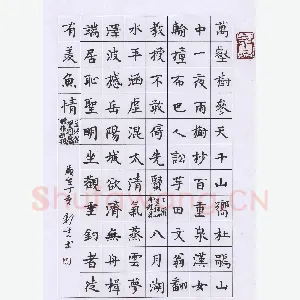 萬壑樹參天千山響杜鵑山
中一夜雨樹杪百重泉漢女
輸橦布巴人訟芋田文翁翻
教授不敢倚先賢八月湖
水平涵虛混太清氣蒸雲夢
澤波撼岳陽城欲濟無舟楫
端居恥聖明坐觀垂釣者徒
有羨魚情
歲丁亥